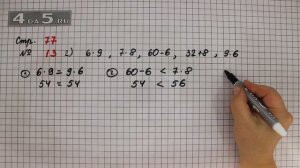 4DA5.RU
Стр. 77
№ 13 2) 6·9 , 7·8 , 60-6 , 32+8 , 9·6
① 6·9 = 9·6 ② 60-6 < 7·8
54 = 54 54 < 56